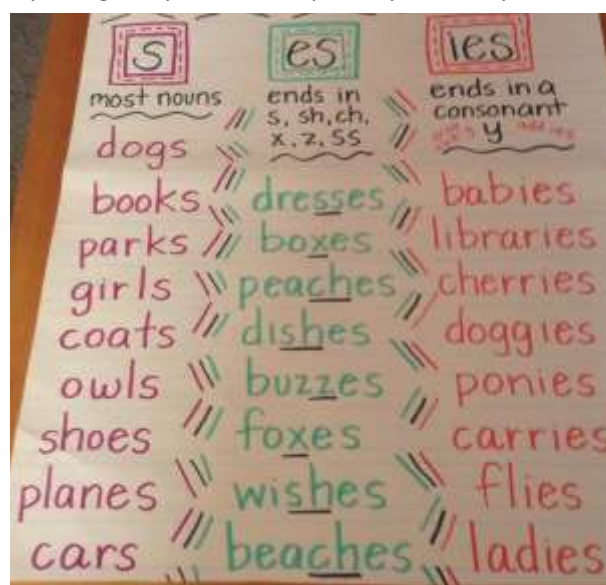 s
most nouns
dogs
books
parks
girls
coats
owls
shoes
planes
cars
es
ends in
s, sh, ch,
x, z, ss
dresses
boxes
peaches
dishes
buzzes
foxes
wishes
beaches
ies
ends in a
consonant
y add ies
babies
libraries
cherries
doggies
ponies
carries
flies
ladies